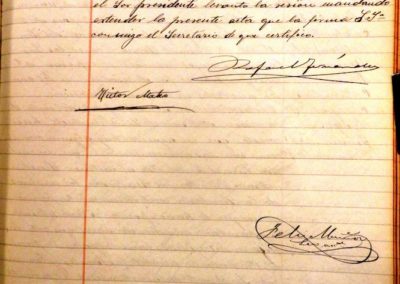 el Sor presidente levanta la sesion mandando
extender la presente acta que la firma S. Sª
conmigo el Secretario de que certifico.
Rafael Fernández
Victor Mata
Felix Muñoz